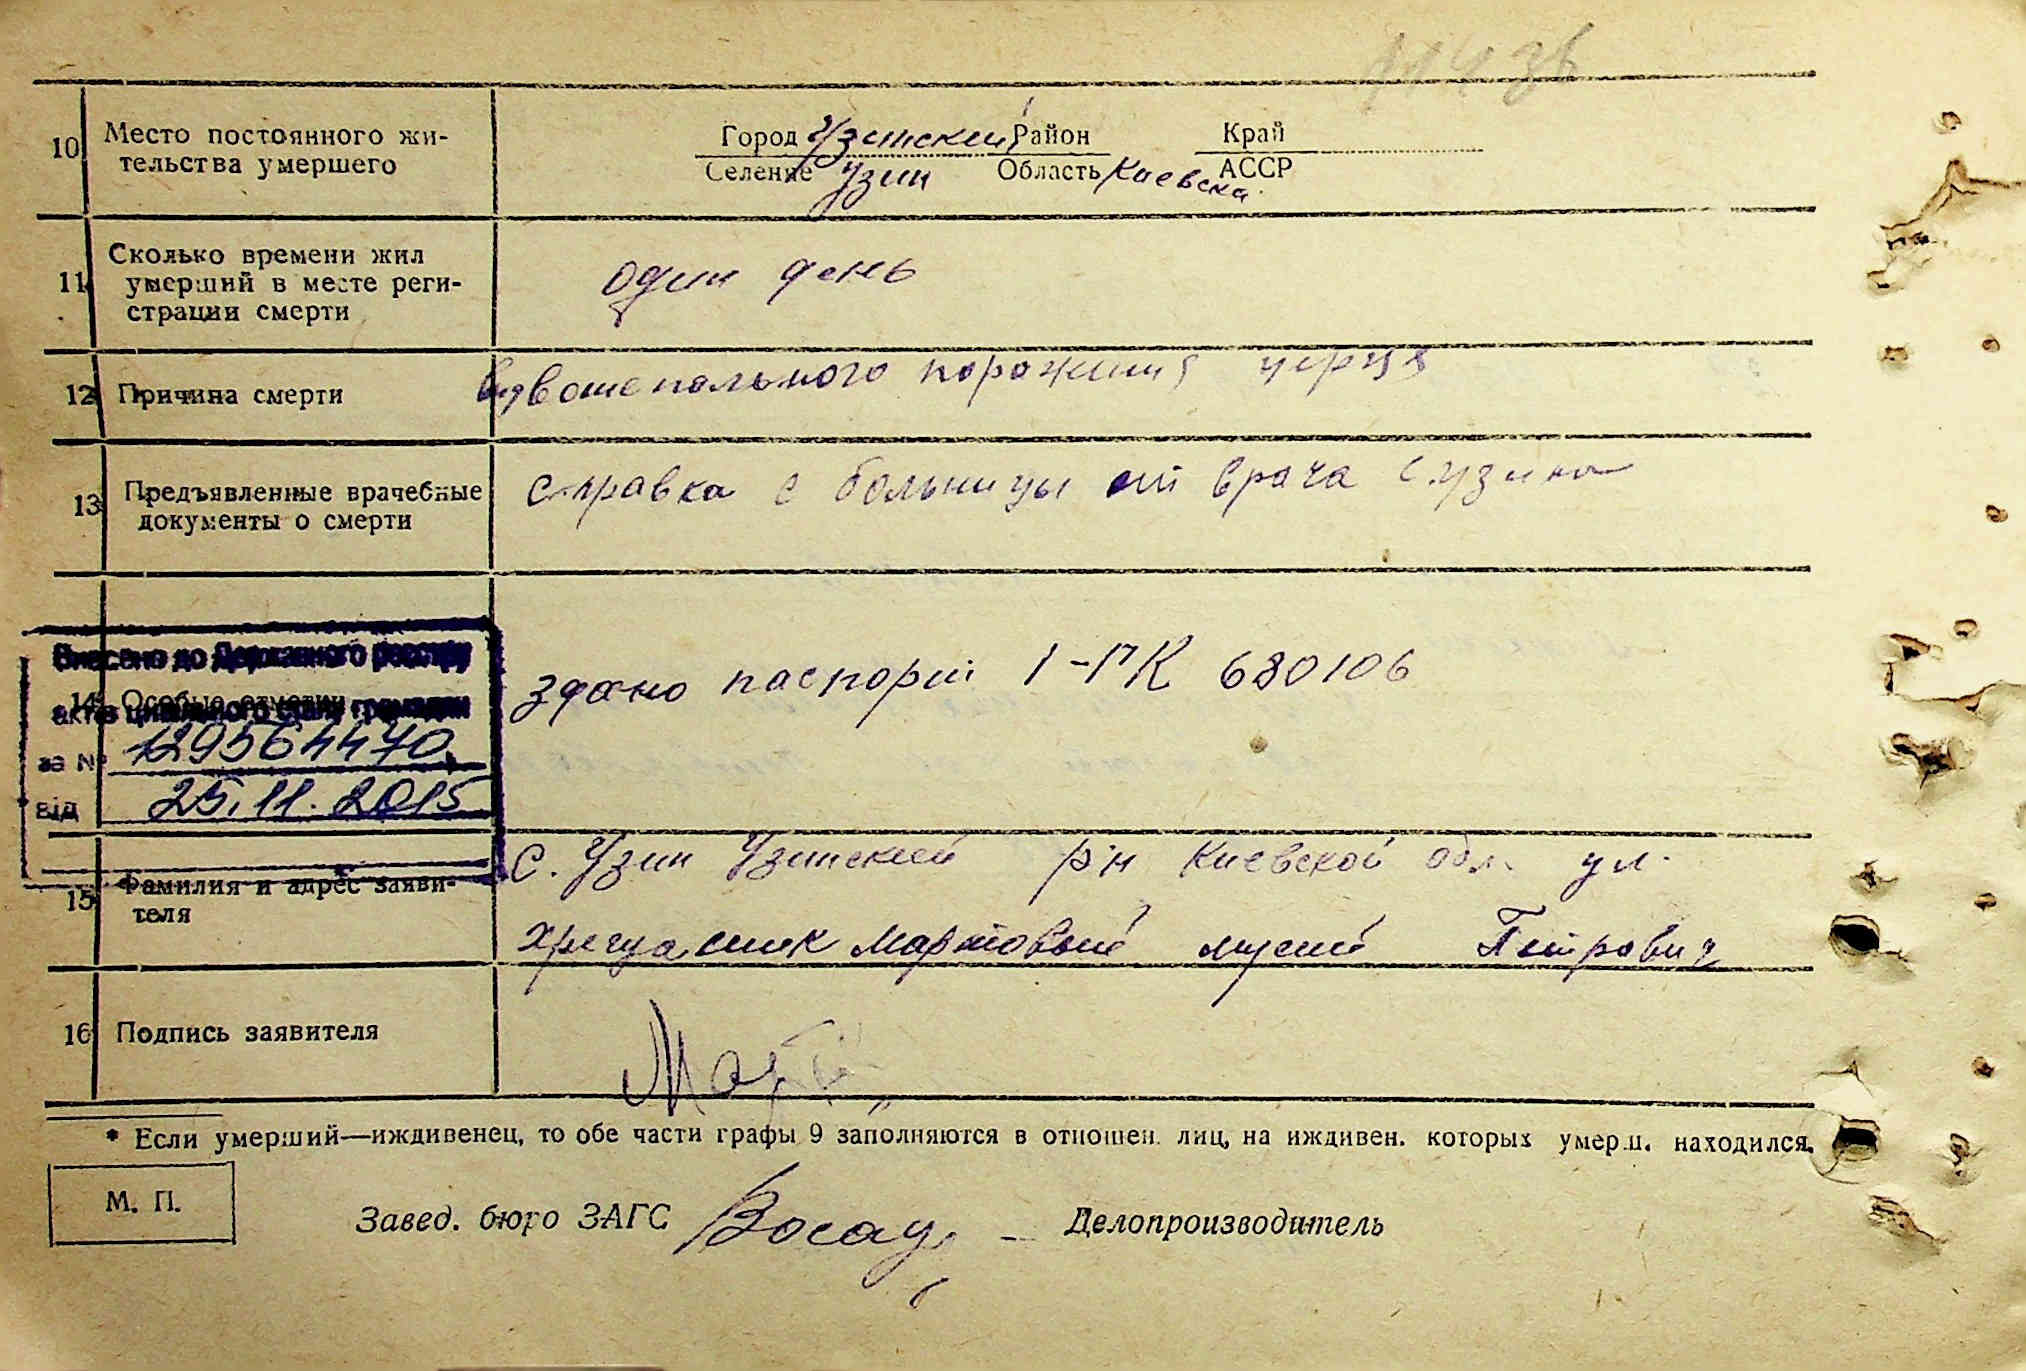 10 Место постоянного жи-
тельства умершего
Город Узинский Район Край
Селение Узин Область Киевска АССР
11 Сколько времени жил
умерший в месте реги-
страции смерти
один день
12 Причина смерти
13 Предъявленные врачебные
документы о смерти
справка с больницы от врача с. Узина
Внесено до Державного реєстру
14 Особые отметки
актів цивільного стану громадян
здано паспорт 1-РК 680106
за № 129564470
від 25.11.2015
с. Узин Узинский р-н Киевской обл. ул.
15 Фамилия и адрес заяви-
теля
Мартовый Петрович
16 Подпись заявителя
* Если умерший—иждивенец, то обе части графы 9 заполняются в отношен. лиц, на иждивен. которых умерш. находился.
М. П.
Завед. бюро ЗАГС Делопроизводитель